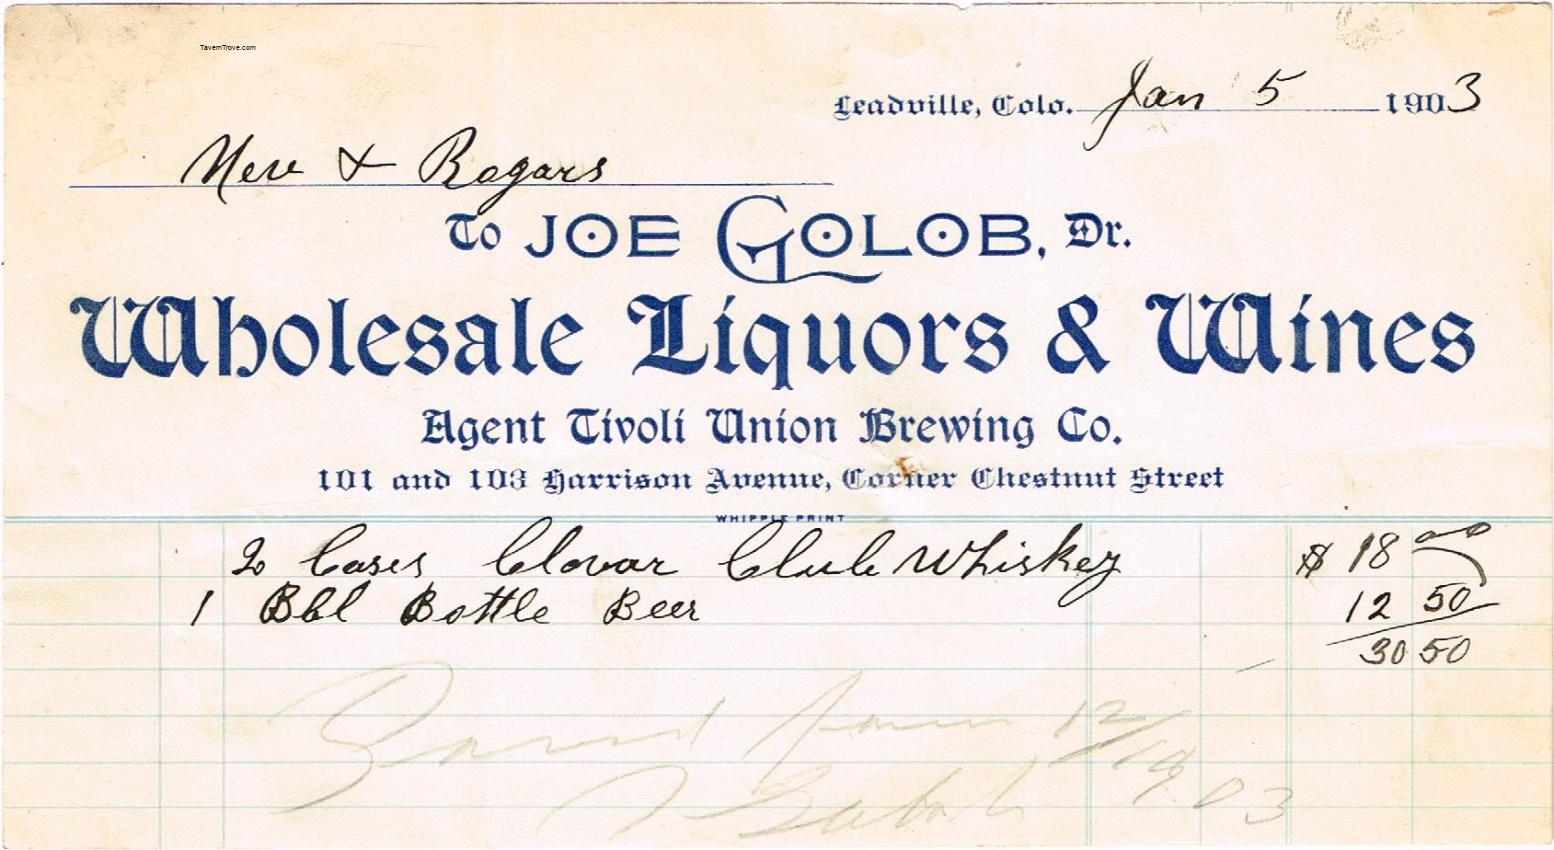 TavernTrove.com
Leadville, Colo. Jan 5 1903
& Rogars
To JOE GOLOB, Dr.
Wholesale Liquors & Wines
Agent Tivoli Union Brewing Co.
101 and 103 Harrison Avenue, Corner Chestnut Street
WHIPPLE PRINT
2 Cases Clovar Club Whiskey $ 18 00
1 Bbl Bottle Beer 12 50
30 50